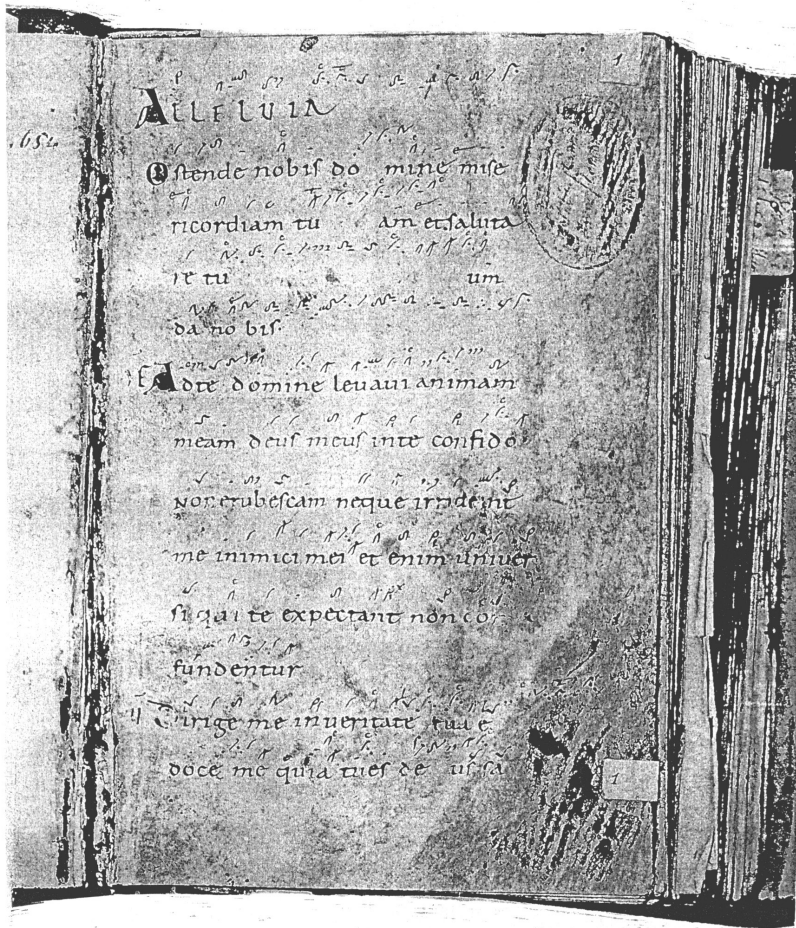 1
.654.
ALLELUIA
Ostende nobis do mine mise
ricordiam tu am et saluta
re tu um
da no bis.
Adte domine levavi animam
meam deus meus inte confido
non erubescam neque irrideant
me inimici mei et enim univer
si qui te expectant non con
fundentur
Dirige me inveritate tua e
doce me quia tues de us sa
1